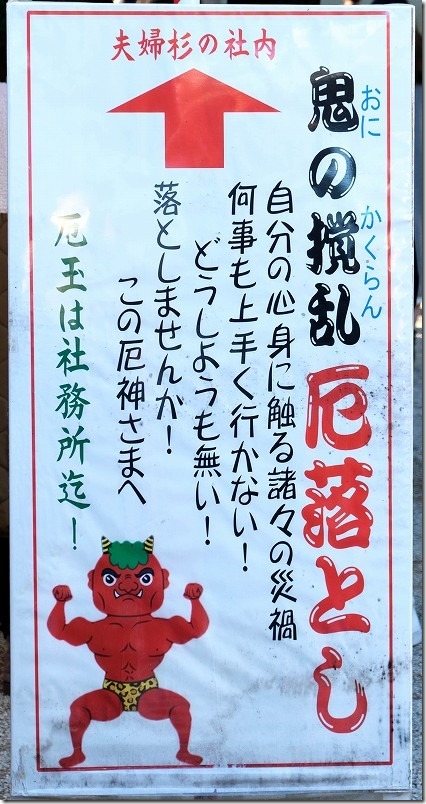 夫婦杉の社内
鬼の攪乱 厄落とし
おに かくらん
自分の心身に触る諸々の災禍
何事も上手く行かない！
どうしようも無い！
落としませんか！
この厄神さまへ
厄玉は社務所迄！